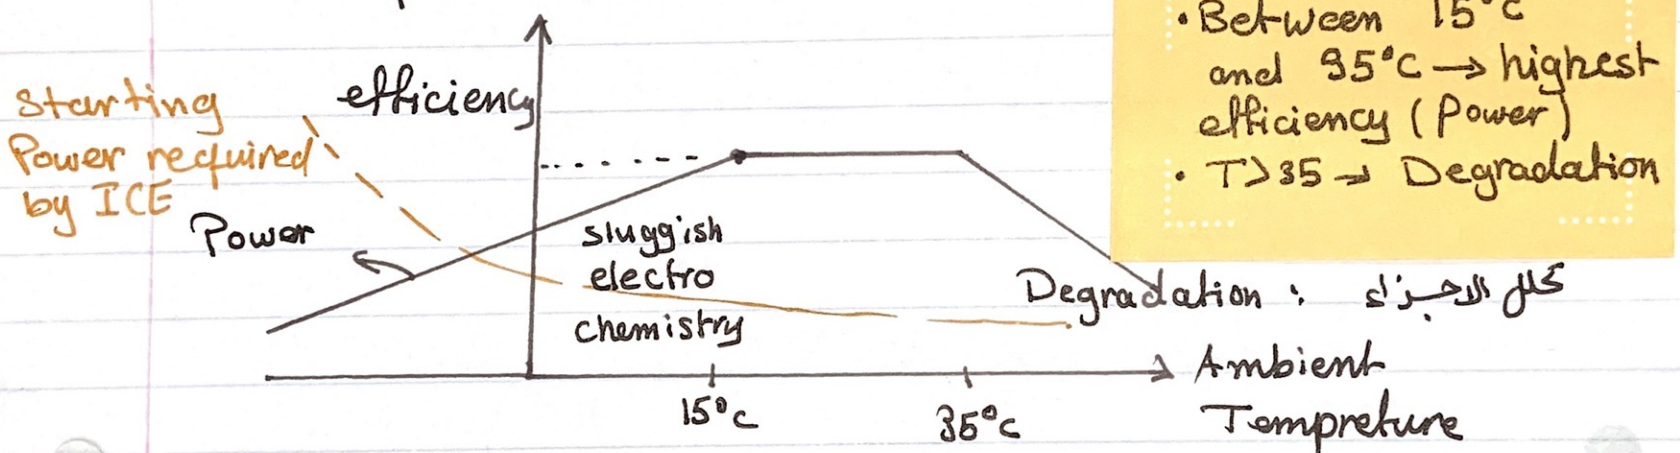 efficiency
Starting
Power required
by ICE
Power
sluggish
electro
chemistry
15°c
35°c
Ambient
Tempreture
Degradation : تحلل الاجزاء
• Between 15°c
and 35°C → highest
efficiency (Power)
• T>35 → Degradation